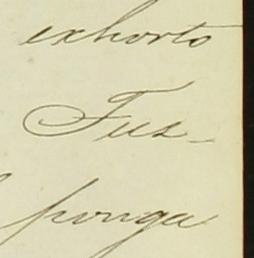 exhorto
Juz-
ponga